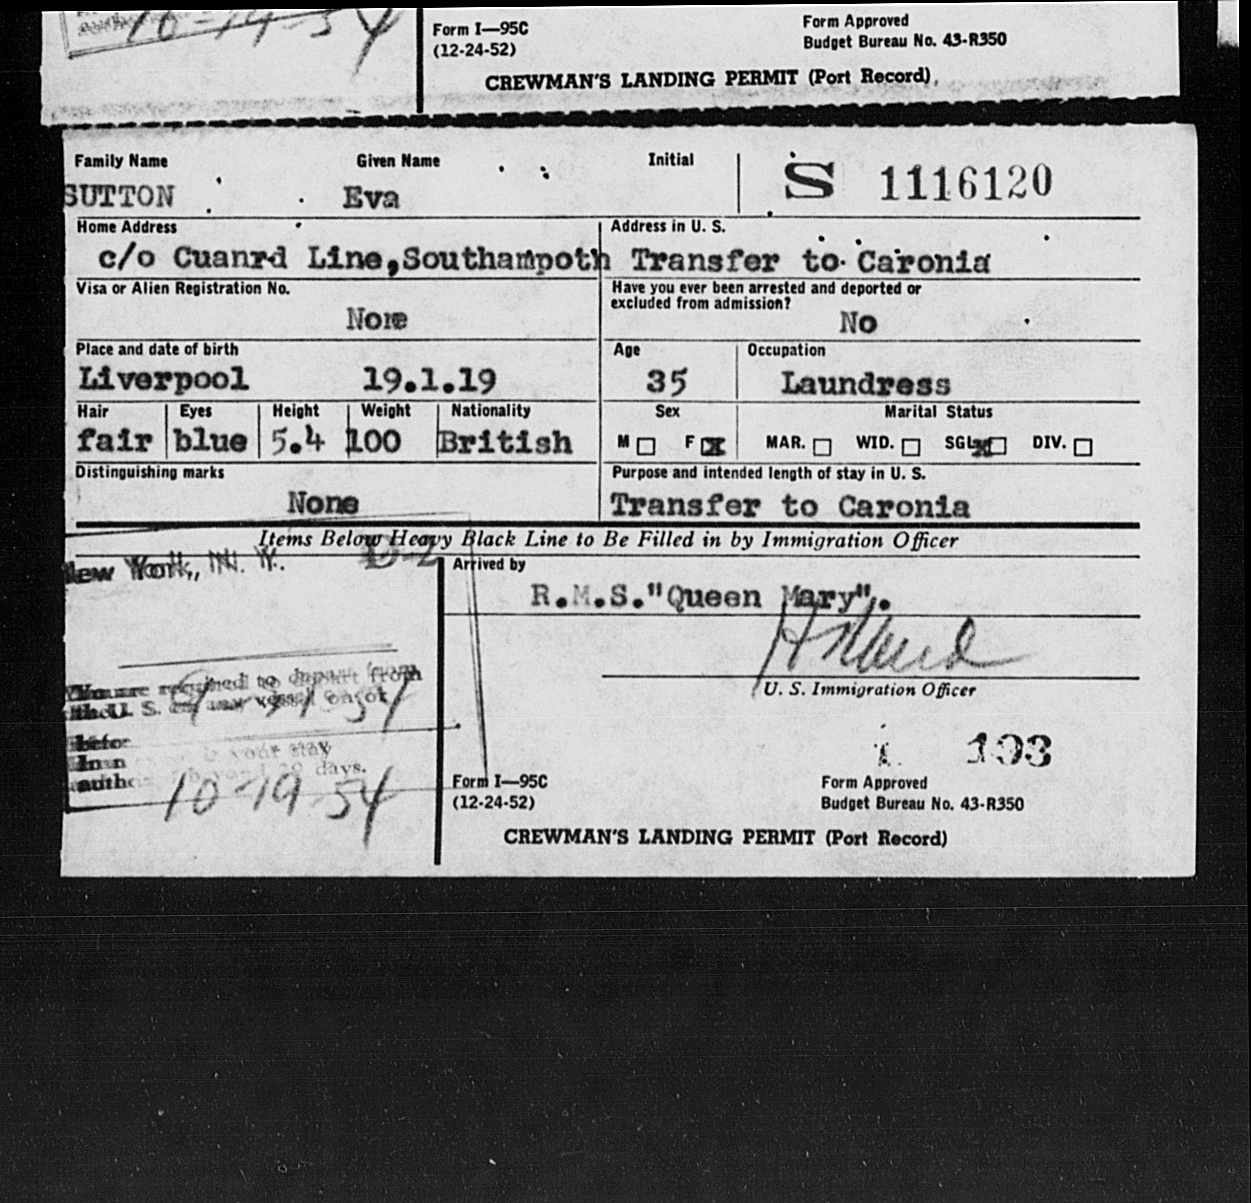 10-19-54
Form I—95C
(12-24-52)
Form Approved
Budget Bureau No. 43-R350
CREWMAN'S LANDING PERMIT (Port Record)
Family Name Given Name Initial
SUTTON Eva
S 1116120
Home Address Address in U. S.
c/o Cuanrd Line,Southampotn Transfer to Caronia
Visa or Alien Registration No. Have you ever been arrested and deported or
excluded from admission?
None No
Place and date of birth Age Occupation
Liverpool 19.1.19 35 Laundress
Hair Eyes Height Weight Nationality Sex Marital Status
fair blue 5.4 100 British M F x MAR. WID. SGL x DIV.
Distinguishing marks Purpose and intended length of stay in U. S.
None Transfer to Caronia
Items Below Heavy Black Line to Be Filled in by Immigration Officer
New York, N. Y. D-2
Arrived by
R.M.S."Queen Mary".
You are required to depart from
the U. S. on any vessel on or
U. S. Immigration Officer
before
your stay
days.
10-19-54
193
Form I—95C
(12-24-52)
Form Approved
Budget Bureau No. 43-R350
CREWMAN'S LANDING PERMIT (Port Record)